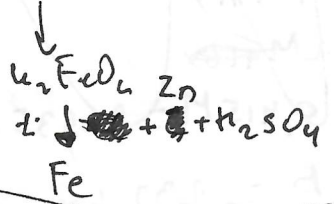 K₂FeO₄
t° + Zn + H₂SO₄
Fe